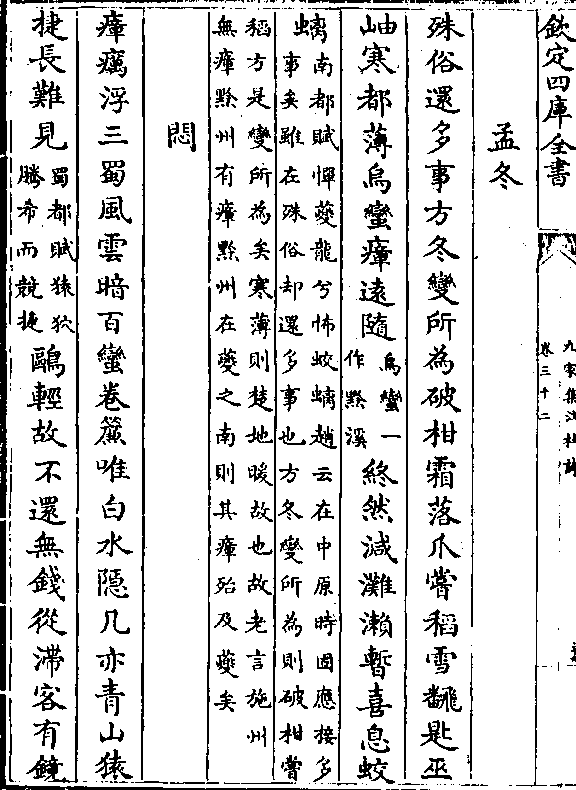 欽定四庫全書
九家集注杜詩
卷三十二
孟冬
殊俗還多事方冬變所為破柑霜落爪嘗稻雪飜匙巫
岫寒都薄烏蠻瘴遠隨烏蠻一作黔溪終然減灘瀨暫喜息蛟
螭南都賦憚夔龍兮怖蛟螭趙云在中原時固應接多
事矣雖在殊俗却還多事也方冬變所為則破柑嘗
稻方是變所為矣寒薄則楚地暖故也故老言施州
無瘴黔州有瘴黔州在夔之南則其瘴殆及夔矣
悶
瘴癘浮三蜀風雲暗百蠻卷簾唯白水隱几亦青山猿
捷長難見蜀都賦猿狖騰希而競捷鷗輕故不還無錢從滯客有鏡